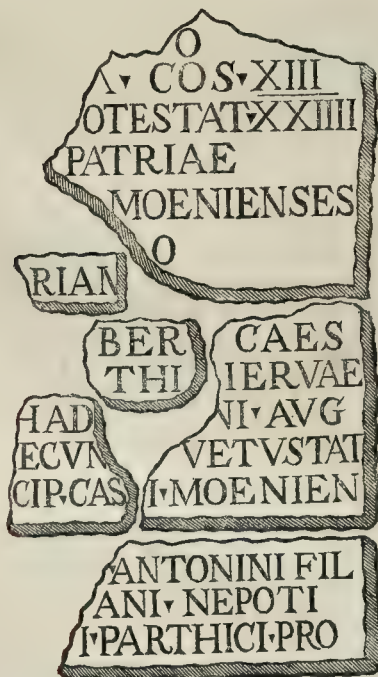 O
Λ ▾ COS ▾ XIII
OTESTAT ▾ XXIIII
PATRIAE
MOENIENSES
O
RIAN
BER
THI
CAES
IERVAE
NI ▾ AVG
VETVSTAT
I ▾ MOENIEN
HAD
ECVN
CIP ▾ CAS
ANTONINI FIL
ANI ▾ NEPOTI
I ▾ PARTHICI ▾ PRO